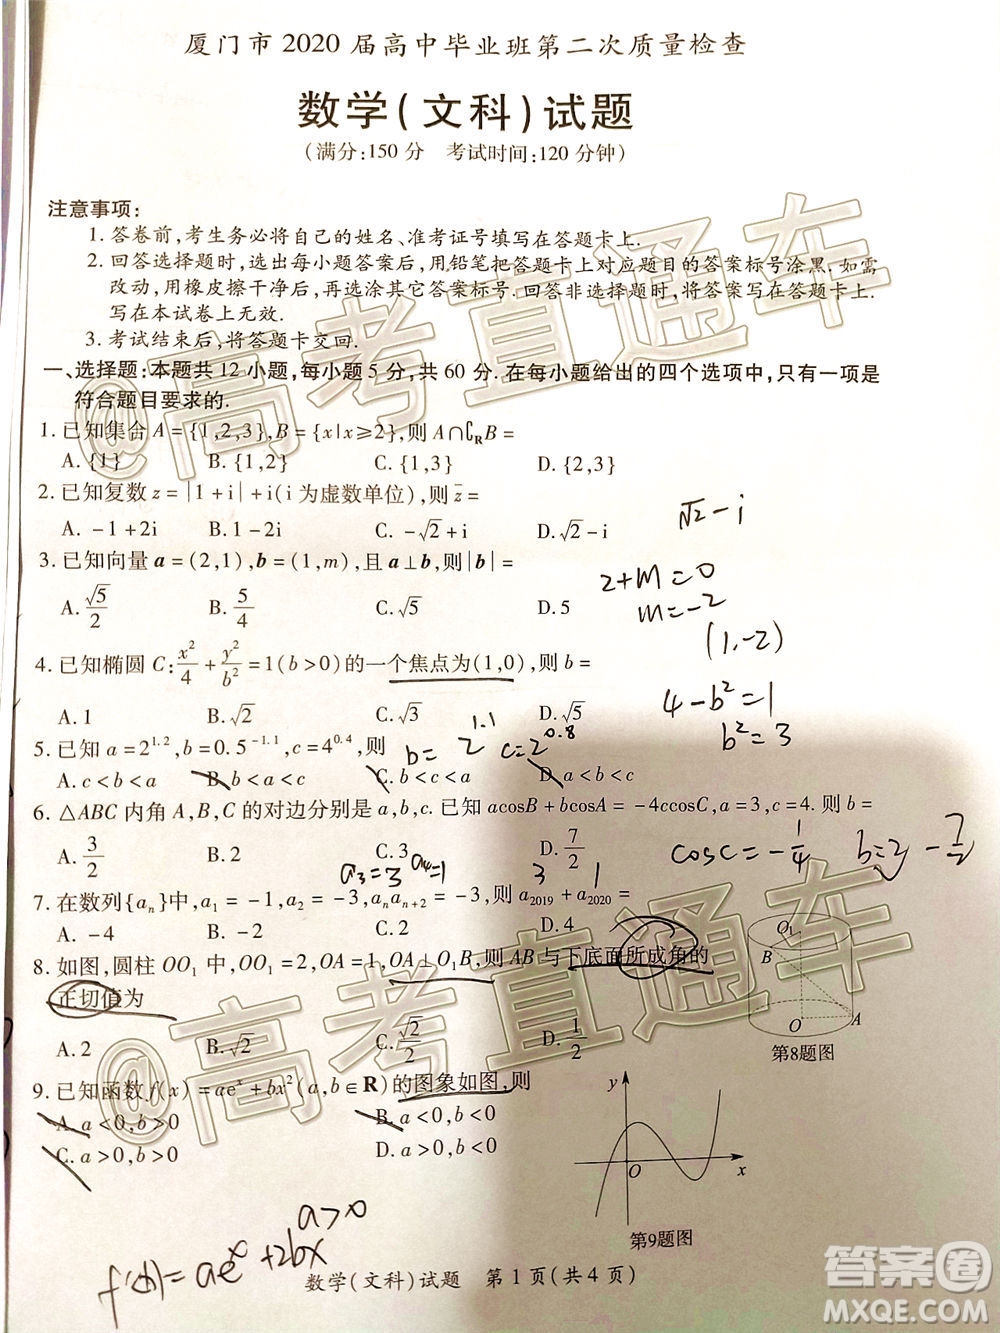 厦门市 2020 届高中毕业班第二次质量检查
数学(文科)试题
(满分:150 分 考试时间:120 分钟)
注意事项:
1. 答卷前,考生务必将自己的姓名、准考证号填写在答题卡上.
2. 回答选择题时,选出每小题答案后,用铅笔把答题卡上对应题目的答案标号涂黑. 如需
改动,用橡皮擦干净后,再选涂其它答案标号. 回答非选择题时,将答案写在答题卡上.
写在本试卷上无效.
3. 考试结束后,将答题卡交回.
一、选择题:本题共 12 小题,每小题 5 分,共 60 分. 在每小题给出的四个选项中,只有一项是
符合题目要求的.
1. 已知集合 A={1,2,3},B={x|x≥2},则 A∩∁RB=
A. {1} B. {1,2} C. {1,3} D. {2,3}
2. 已知复数 z=|1+i|+i(i 为虚数单位),则 z̄=
A. -1+2i B. 1-2i C. -√2+i D. √2-i
√2-i
3. 已知向量 a=(2,1),b=(1,m),且 a⊥b,则|b|=
A. √5/2 B. 5/4 C. √5 D. 5
2+m=0
m=-2
(1,-2)
4. 已知椭圆 C:x²/4+y²/b²=1(b>0)的一个焦点为(1,0),则 b=
A. 1 B. √2 C. √3 D. √5
4-b²=1
b²=3
5. 已知 a=2^1.2,b=0.5^-1.1,c=4^0.4,则
b=2^1.1 c=2^0.8
A. c<b<a B. b<c<a C. b<a<c D. a<b<c
6. △ABC 内角 A,B,C 的对边分别是 a,b,c. 已知 acosB+bcosA=-4ccosC,a=3,c=4. 则 b=
A. 3/2 B. 2 C. 3 D. 7/2
cosC=-1/4 b=2 -7/2
a₃=3 a₄=1 3 1
7. 在数列{aₙ}中,a₁=-1,a₂=-3,aₙaₙ₊₂=-3,则 a₂₀₁₉+a₂₀₂₀=
A. -4 B. -2 C. 2 D. 4
8. 如图,圆柱 OO₁ 中,OO₁=2,OA=1,OA⊥O₁B,则 AB 与下底面所成角的
正切值为
A. 2 B. √2 C. √2/2 D. 1/2
O₁
B
O
A
第8题图
9. 已知函数 f(x)=aeˣ+bx²(a,b∈R)的图象如图,则
A. a<0,b>0 B. a<0,b<0
C. a>0,b>0 D. a>0,b<0
y
O
x
第9题图
a>0
f'(x)=aeˣ+2bx
数学(文科)试题 第 1 页(共 4 页)
@高考直通车
@高考直通车
答案圈
MXQE.COM